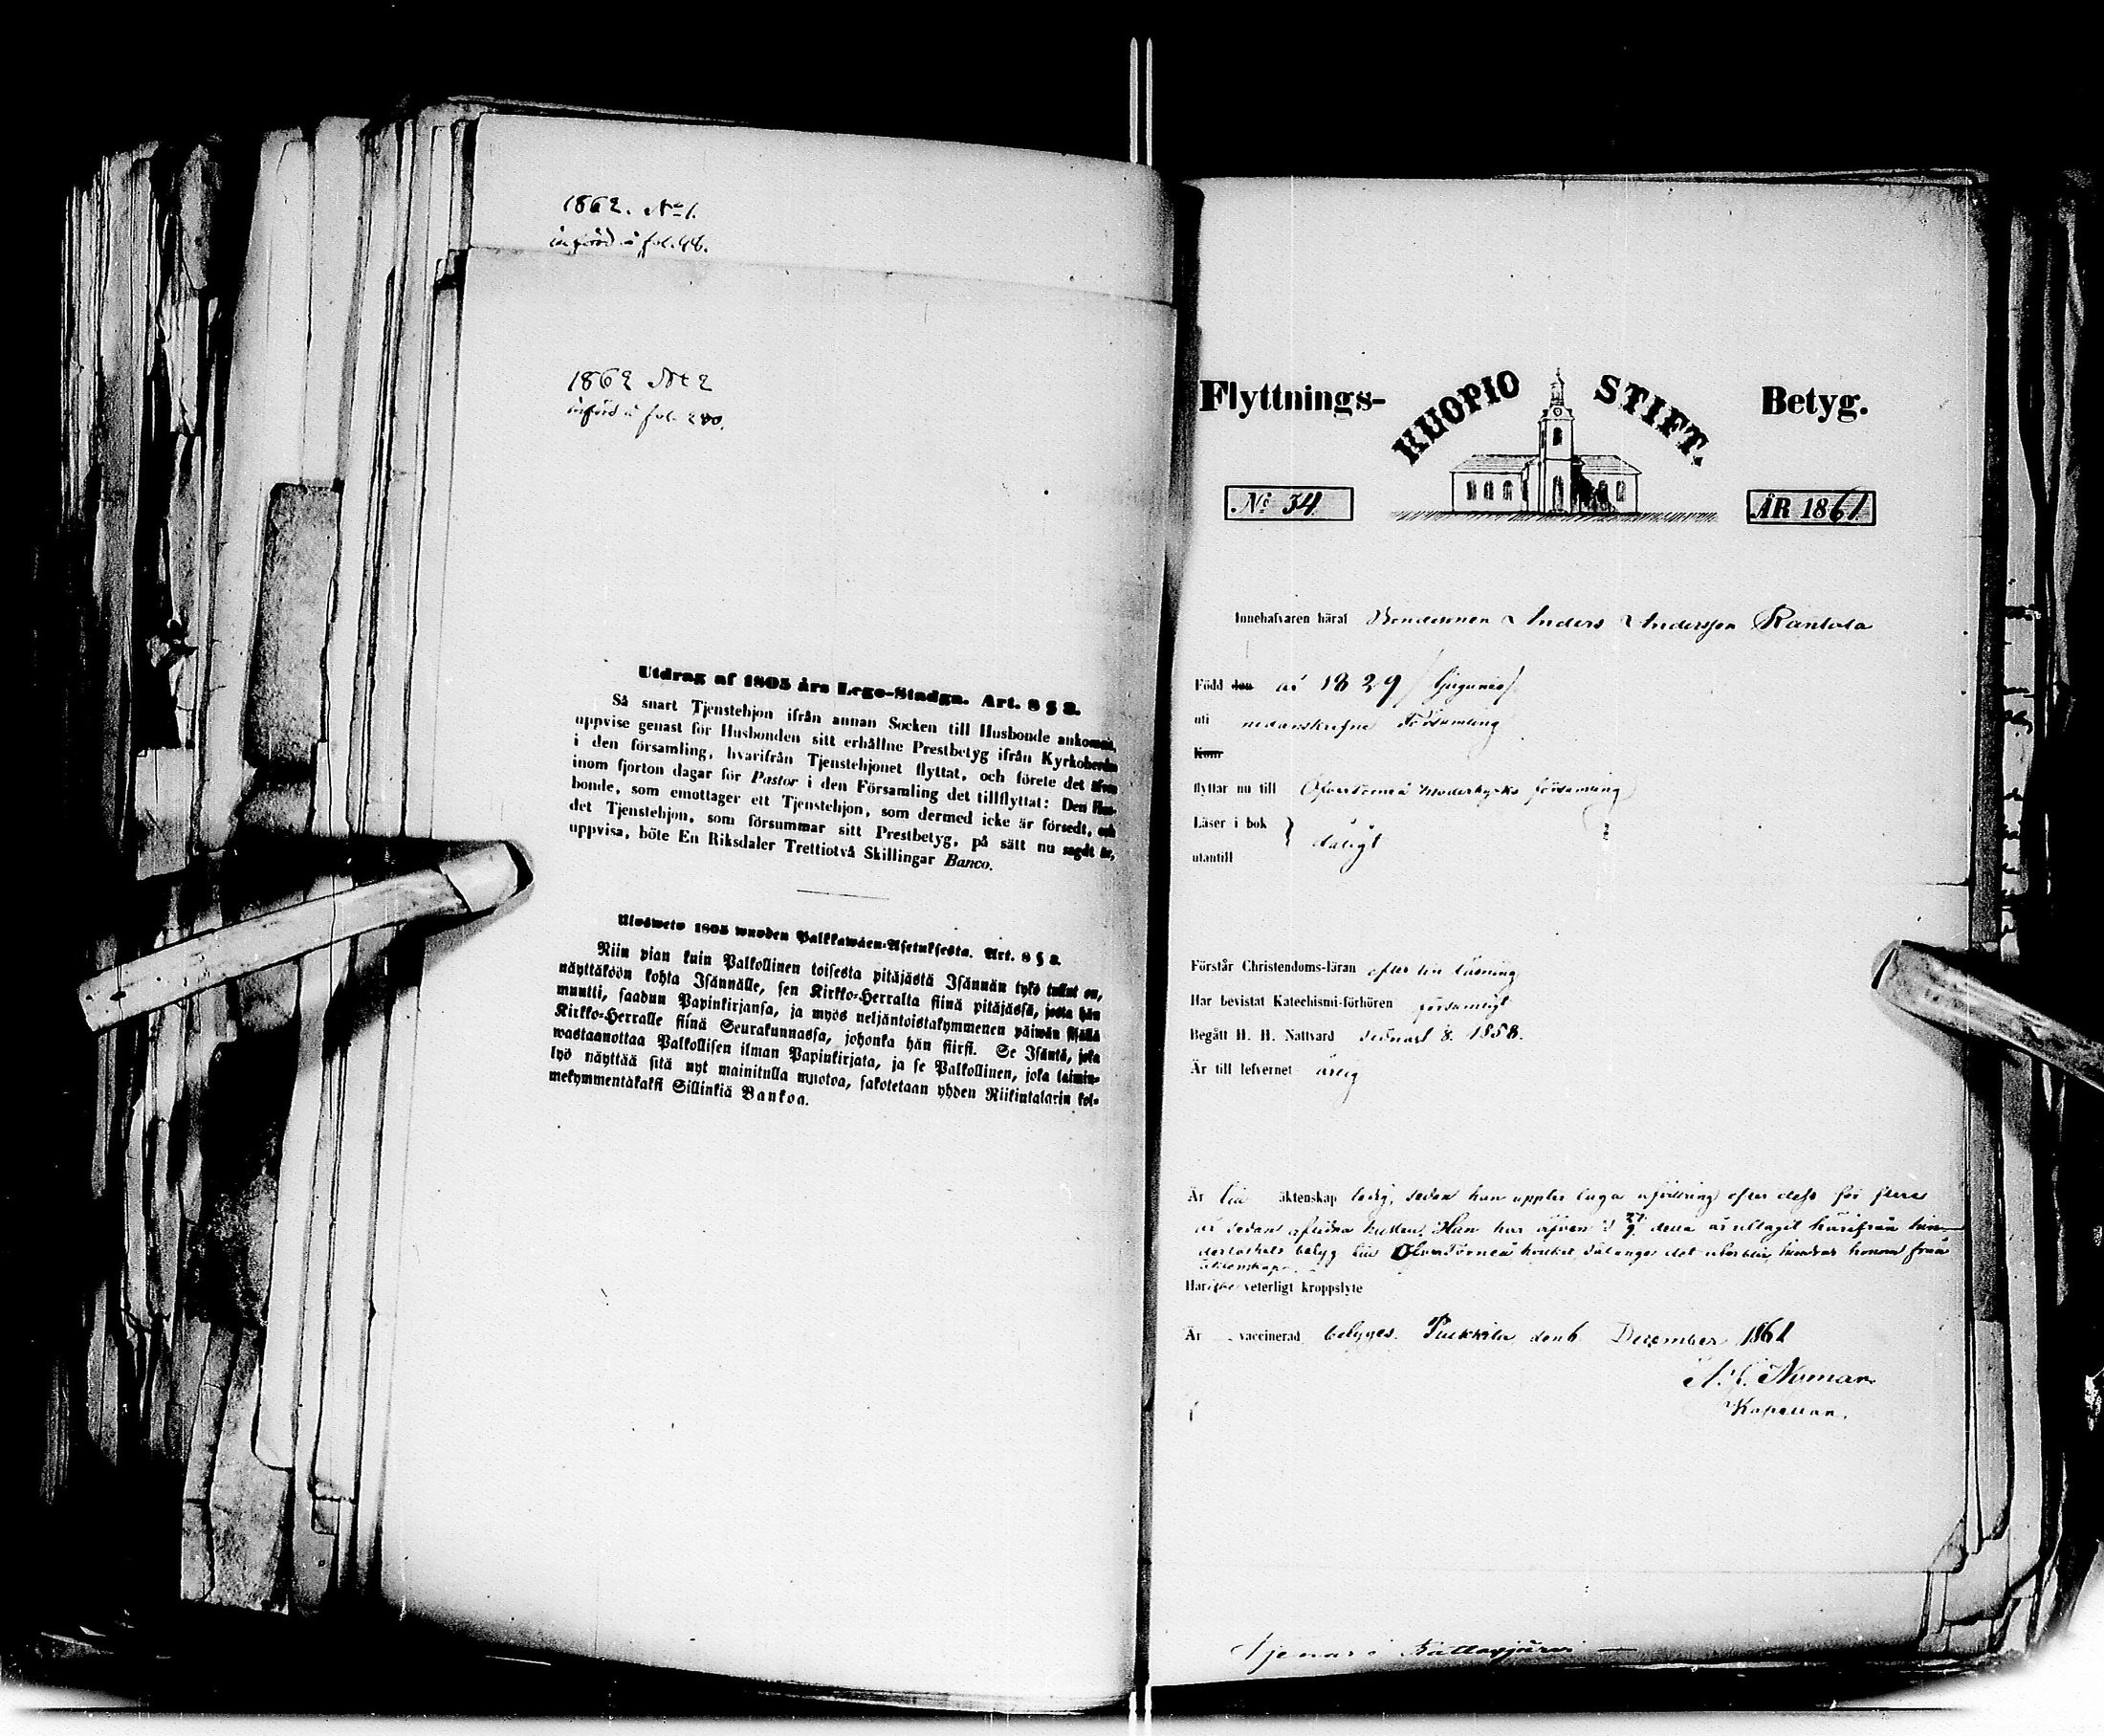 1862. No 1.
införd å fol. 48.
1862 No 2
införd å fol. 280.
Utdrag af 1805 års Lego-Stadga. Art. 8 § 2.
Så snart Tjenstehjon ifrån annan Socken till Husbonde ankommit,
uppvise genast för Husbonden sitt erhållne Prestbetyg ifrån Kyrkoherden
i den församling, hvarifrån Tjenstehjonet flyttat, och förete det äfven
inom fjorton dagar för Pastor i den Församling det tillflyttat: Den Hus-
bonde, som emottager ett Tjenstehjon, som dermed icke är försedt, och
det Tjenstehjon, som försummar sitt Prestbetyg, på sätt nu sagdt är,
uppvisa, böte En Riksdaler Trettiotvå Skillingar Banco.
Ulosweto 1805 wuoden Palkkawäen-Asetuksesta. Art. 8 § 2.
Niin pian kuin Palkollinen toisesta pitäjästä Isännän tykö tullut on,
näyttäköön kohta Isännälle, sen Kirkko-Herralta siinä pitäjässä, josta hän
muutti, saadun Papinkirjansa, ja myös neljäntoistakymmenen päiwän sisällä
Kirkko-Herralle siinä Seurakunnassa, johonka hän siirsi. Se Isäntä, joka
wastaanottaa Palkollisen ilman Papinkirjata, ja se Palkollinen, joka laimin-
lyö näyttää sitä nyt mainitulla muotoa, sakotetaan yhden Riikintalarin kol-
mekymmentäkaksi Sillinkiä Bankoa.
Flyttnings- KUOPIO STIFT. Betyg.
No 34. ÅR 1861
Innehafvaren häraf Bondesonen Anders Andersson Rantala
Född den år 1829
uti nedanskrefne Församling
Kom
flyttar nu till Öfvertorneå Moderkyrko församling
Läser i bok
utantill } dåligt
Förstår Christendoms-läran efter sin läsning
Har bevistat Katechismi-förhören försumligt
Begått H. H. Nattvard sednast 1858.
Är till lefvernet ärlig
Är till äktenskap ledig, sedan han upplst laga afvittring efter dess för flere
år sedan aflidna hustru. Han har äfven d. 27/9 detta år uttagit härifrån hin-
derlöshets betyg till Öfvertorneå hvilket, sålänge det uteblir, hindrar honom från
äktenskap.
Har icke veterligt kroppslyte
Är vaccinerad betygas. Pudkila den 6 December 1861
Numan
Kapellan.
Tjenar i Kattasjärvi